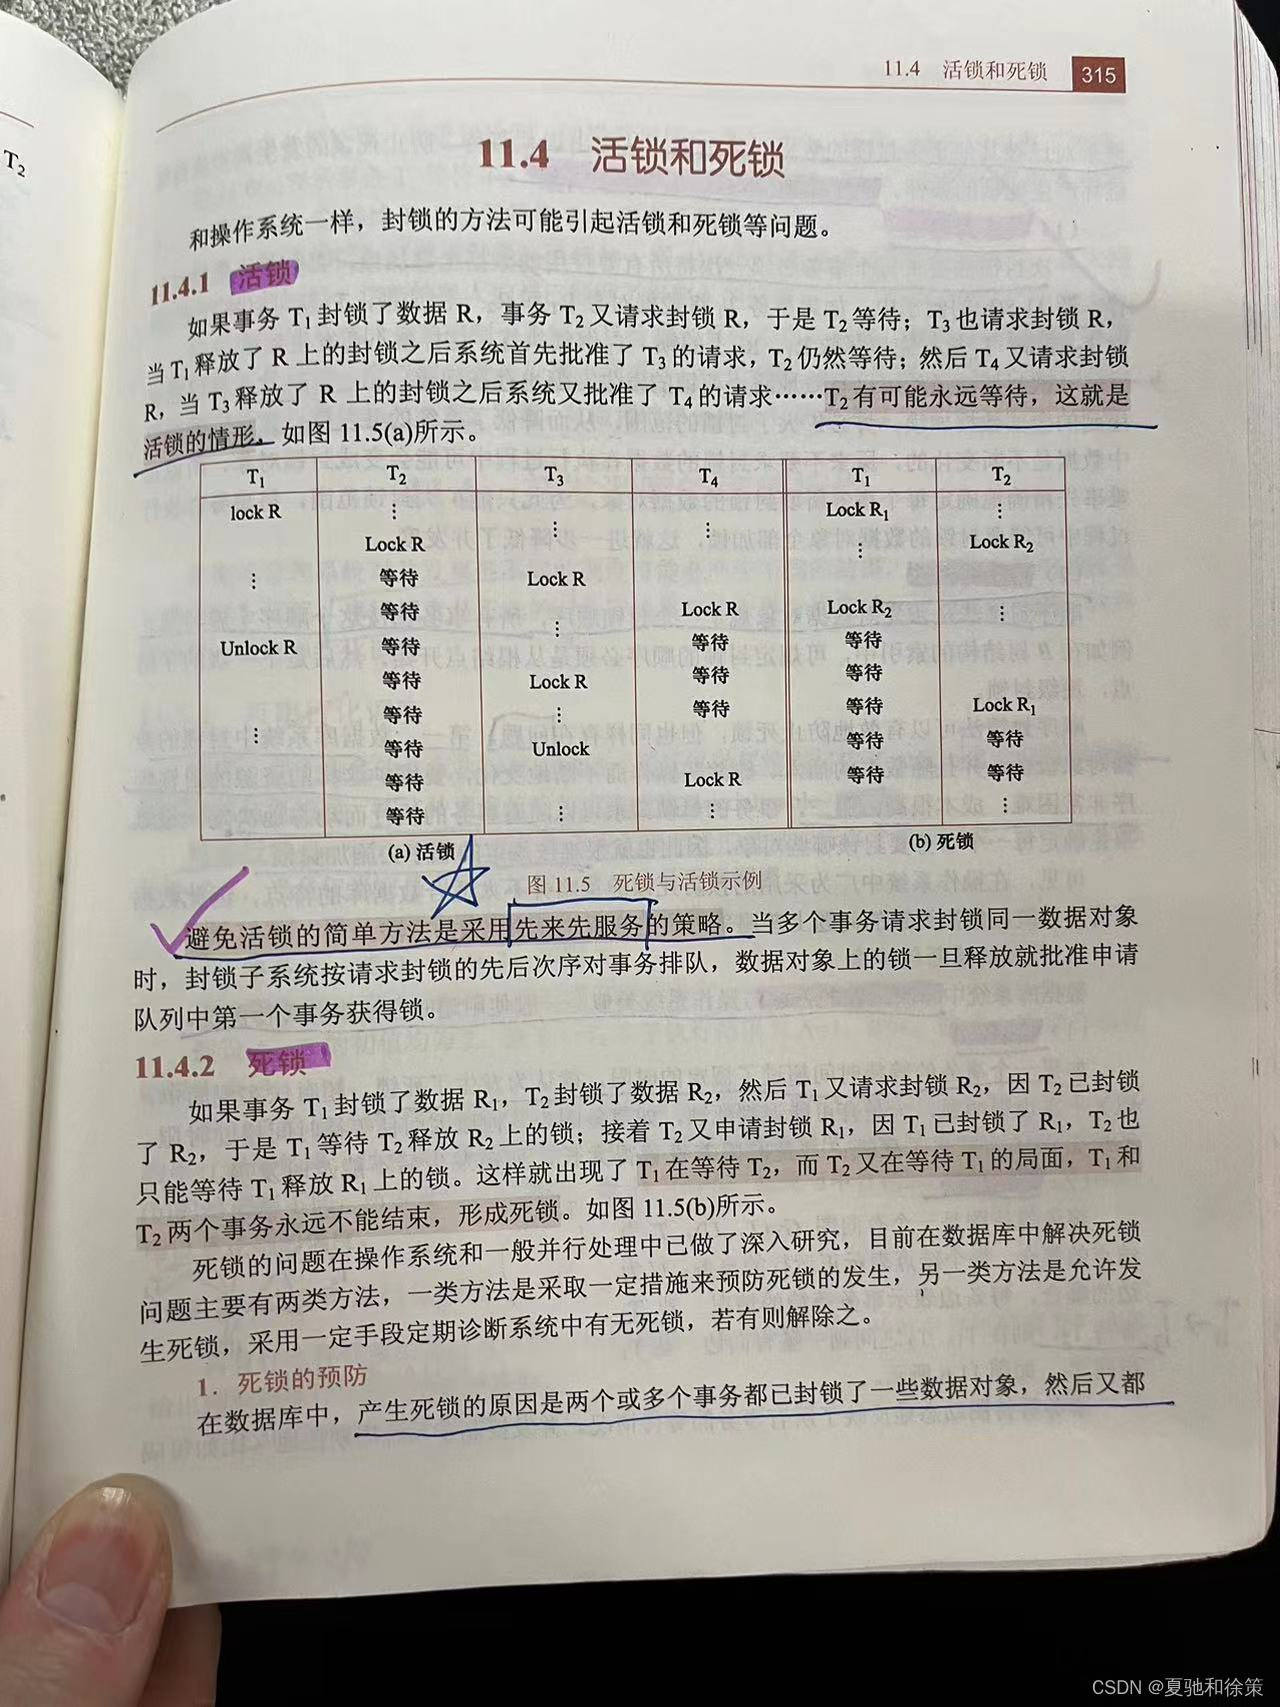 T₂
11.4 活锁和死锁 315
11.4 活锁和死锁
和操作系统一样，封锁的方法可能引起活锁和死锁等问题。
11.4.1 活锁
如果事务 T₁封锁了数据 R，事务 T₂又请求封锁 R，于是 T₂等待；T₃也请求封锁 R，
当 T₁释放了 R 上的封锁之后系统首先批准了 T₃的请求，T₂仍然等待；然后 T₄又请求封锁
R，当 T₃释放了 R 上的封锁之后系统又批准了 T₄的请求……T₂有可能永远等待，这就是
活锁的情形。如图 11.5(a)所示。
T₁ T₂ T₃ T₄ T₁ T₂
lock R ⋮ ⋮ ⋮ Lock R₁ ⋮
Lock R ⋮ Lock R₂
⋮ 等待 Lock R
等待 Lock R Lock R₂ ⋮
Unlock R 等待 ⋮ 等待 等待
等待 Lock R 等待 等待
等待 ⋮ 等待 等待 Lock R₁
⋮ 等待 Unlock 等待 等待
等待 Lock R 等待 等待
等待 ⋮ ⋮ ⋮
(a) 活锁 (b) 死锁
图 11.5 死锁与活锁示例
避免活锁的简单方法是采用先来先服务的策略。当多个事务请求封锁同一数据对象
时，封锁子系统按请求封锁的先后次序对事务排队，数据对象上的锁一旦释放就批准申请
队列中第一个事务获得锁。
11.4.2 死锁
如果事务 T₁封锁了数据 R₁，T₂封锁了数据 R₂，然后 T₁又请求封锁 R₂，因 T₂已封锁
了 R₂，于是 T₁等待 T₂释放 R₂上的锁；接着 T₂又申请封锁 R₁，因 T₁已封锁了 R₁，T₂也
只能等待 T₁释放 R₁上的锁。这样就出现了 T₁在等待 T₂，而 T₂又在等待 T₁的局面，T₁和
T₂两个事务永远不能结束，形成死锁。如图 11.5(b)所示。
死锁的问题在操作系统和一般并行处理中已做了深入研究，目前在数据库中解决死锁
问题主要有两类方法，一类方法是采取一定措施来预防死锁的发生，另一类方法是允许发
生死锁，采用一定手段定期诊断系统中有无死锁，若有则解除之。
1. 死锁的预防
在数据库中，产生死锁的原因是两个或多个事务都已封锁了一些数据对象，然后又都
CSDN @夏驰和徐策